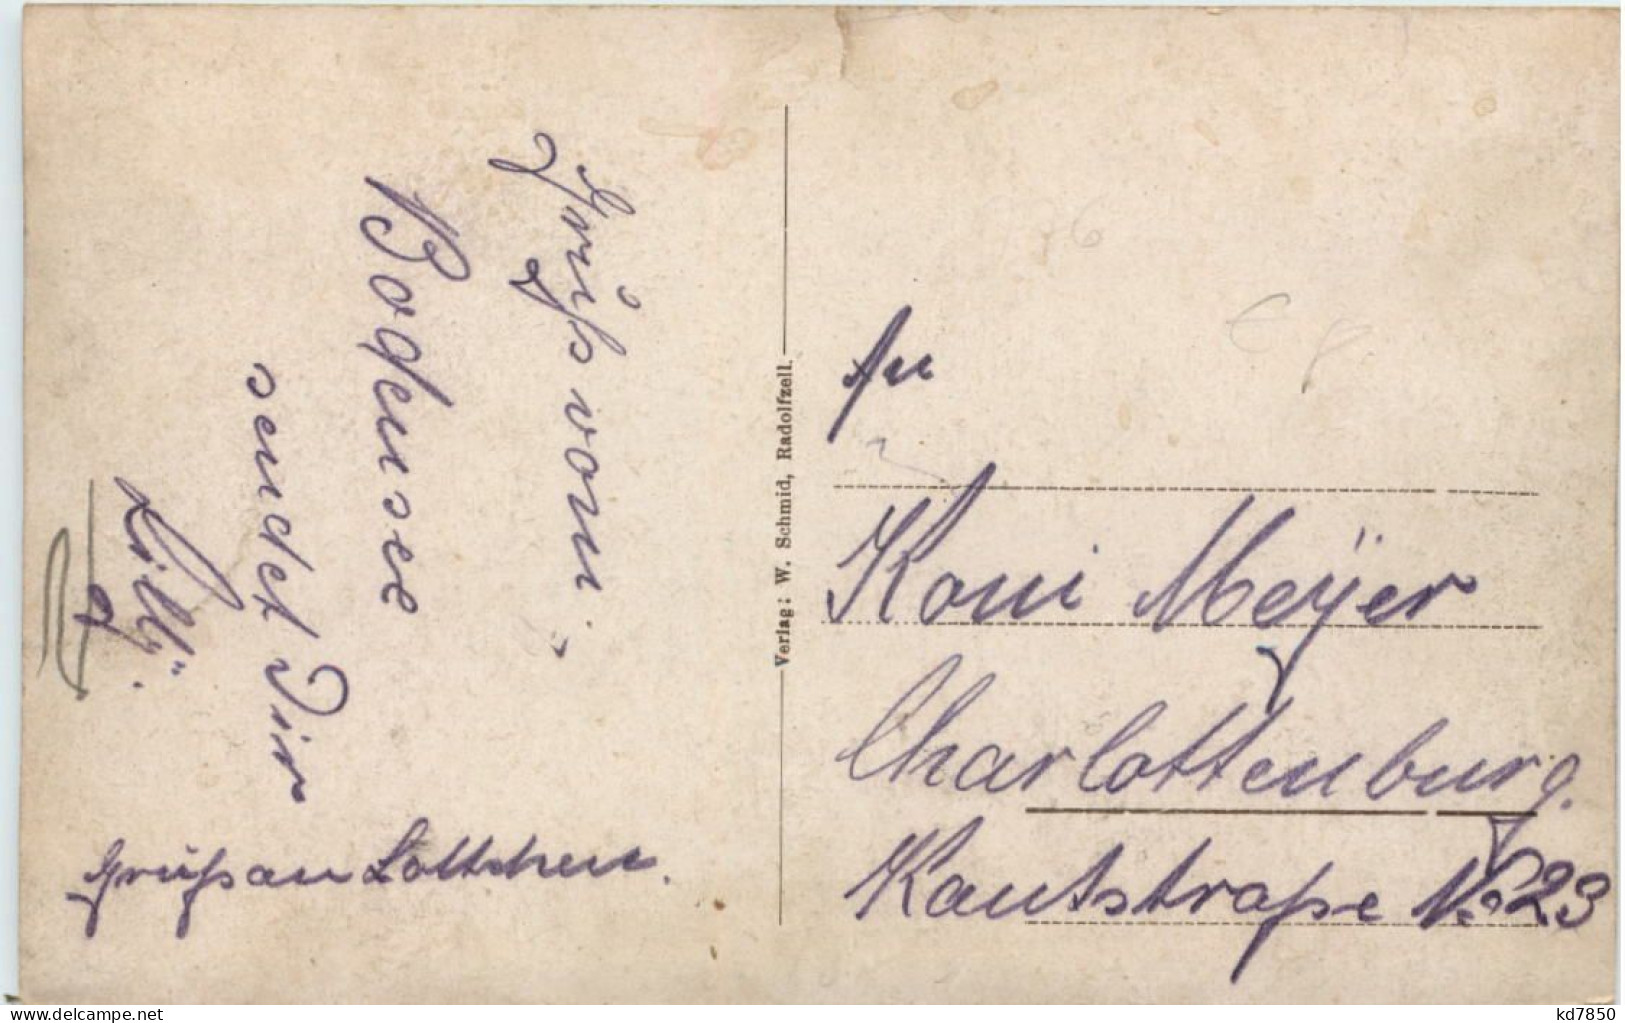 Gruß vom
Bodensee
sendet Dir
Lilly.
Gruß an Lottchen.
Verlag: W. Schmid, Radolfzell.
An
Koni Meÿer
Charlottenburg.
Kantstraße No 23
kd7850